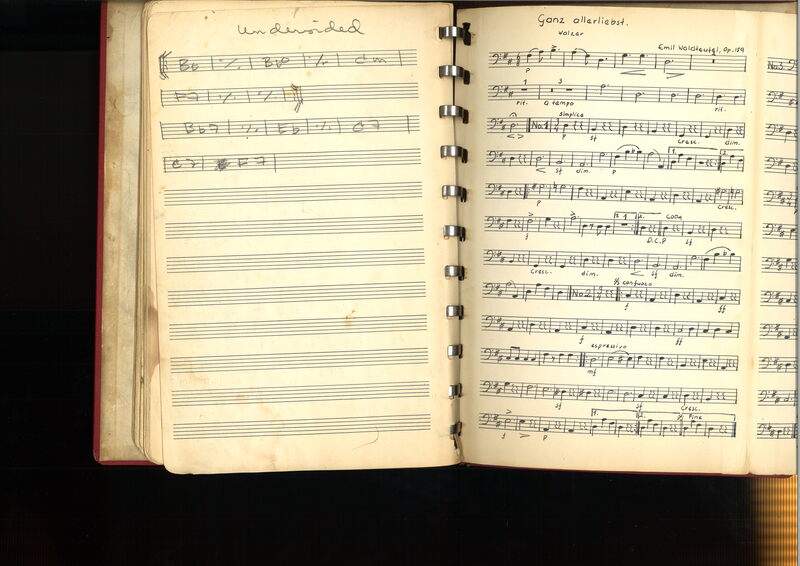 Undecided
Bb | ٪ | Bb | ٪ | Cm |
F7 | ٪ | ٪ |
Bb7 | ٪ | Eb | ٪ | C7
C7 | F7 |
Ganz allerliebst.
Walzer
Emil Waldteufel, Op. 159
p
1 3 1
rit. a tempo rit.
simplice
No.1
p sf cresc. dim.
1. 2.
sf dim. p
No 3.
p cresc.
1. 2. CODA
f D.C.P sf
cresc. dim. sf dim.
No 2.
f ff
f ff
espressivo
mf
sf sf cresc.
1. 2. Fine
f p